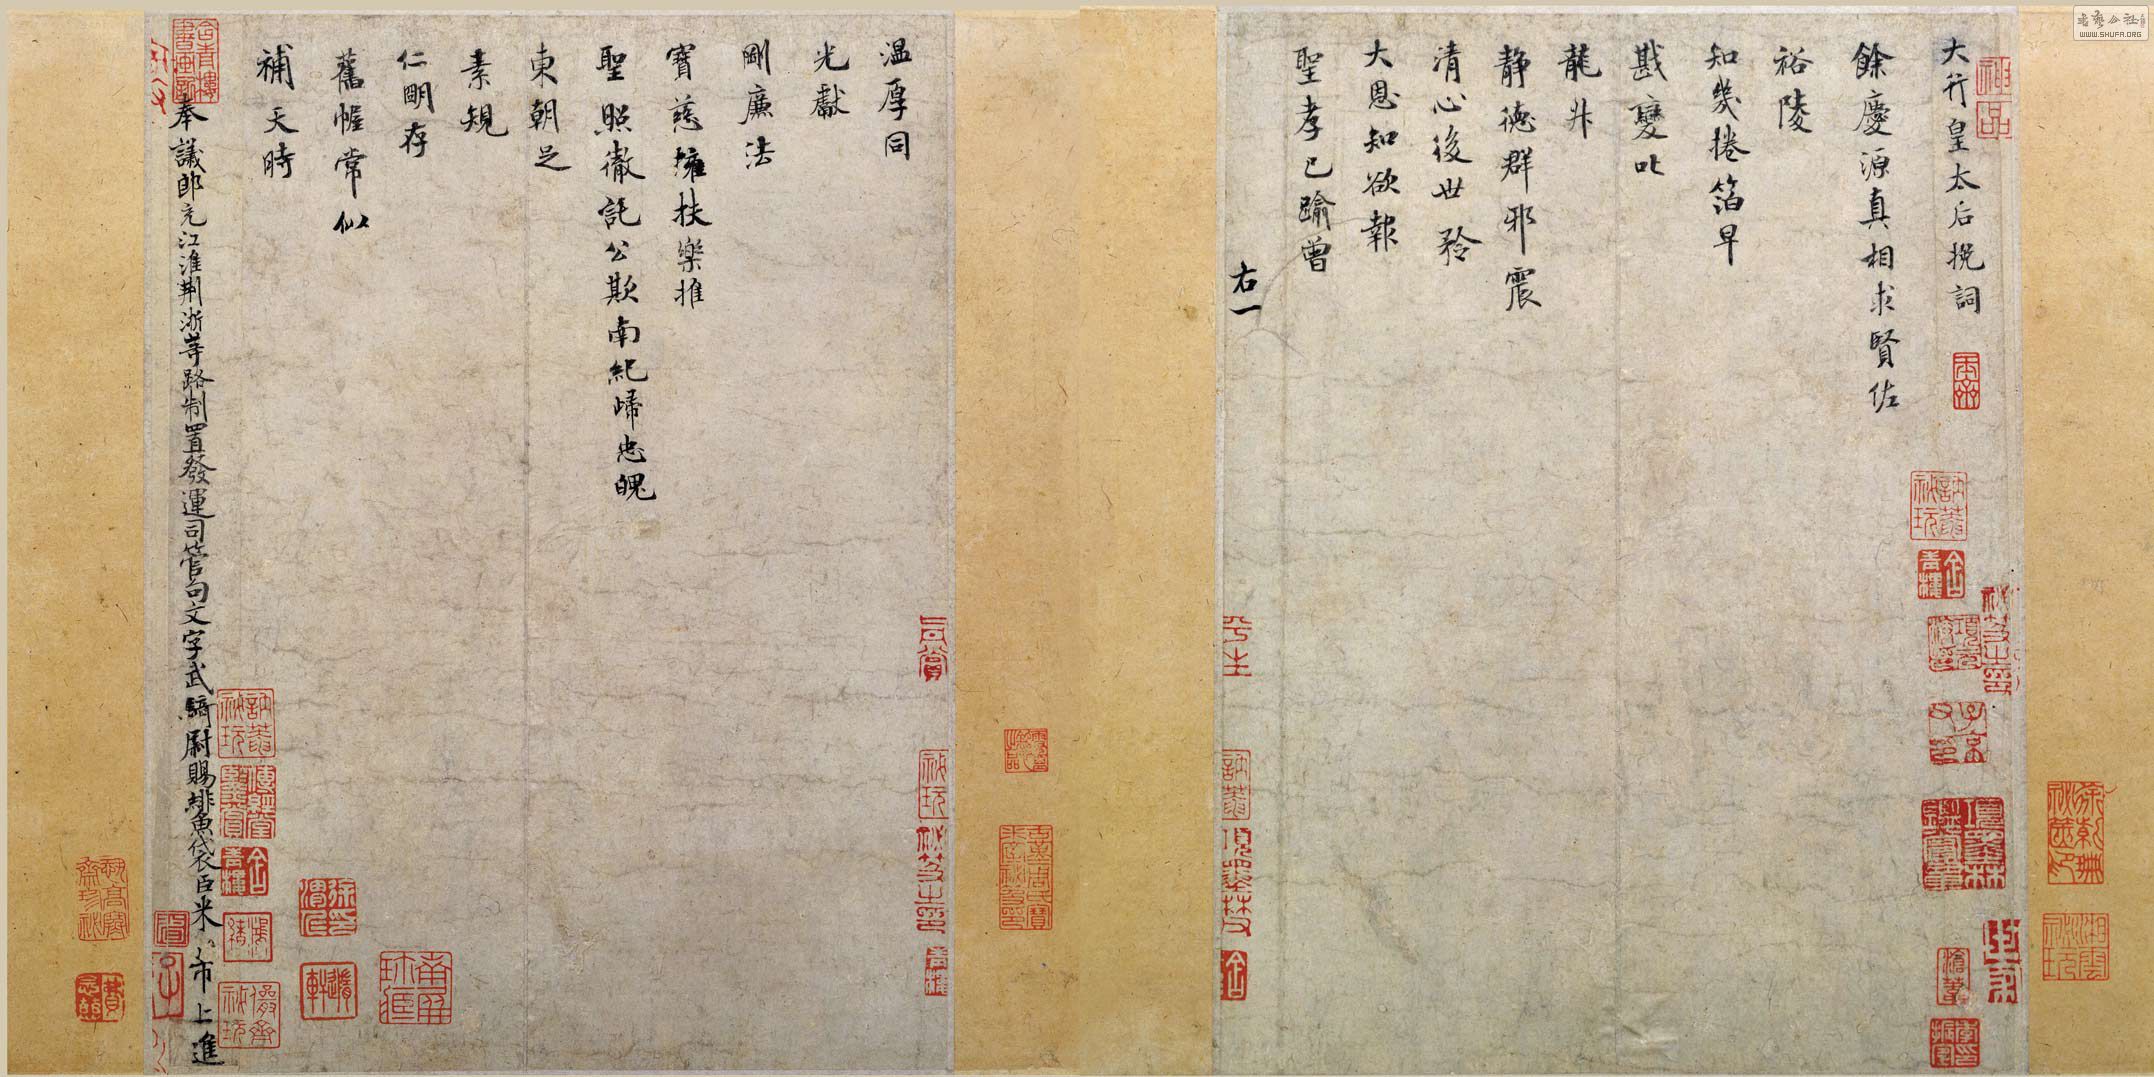 大行皇太后挽詞
餘慶源真相求賢佐
裕陵
知幾捲箔早
戡變叱
龍升
静德群邪震
清心後世矜
大恩知欲報
聖孝已踰曾
右一
温厚同
光獻
剛廉法
寶慈擁扶樂推
聖照徹託公欺南紀歸忠魄
東朝足
素規
仁明存
舊幄常似
補天時
奉議郎充江淮荆浙等路制置發運司管句文字武騎尉賜緋魚袋臣米芾上進
神品
平生
真賞
WWW.SHUFA.ORG